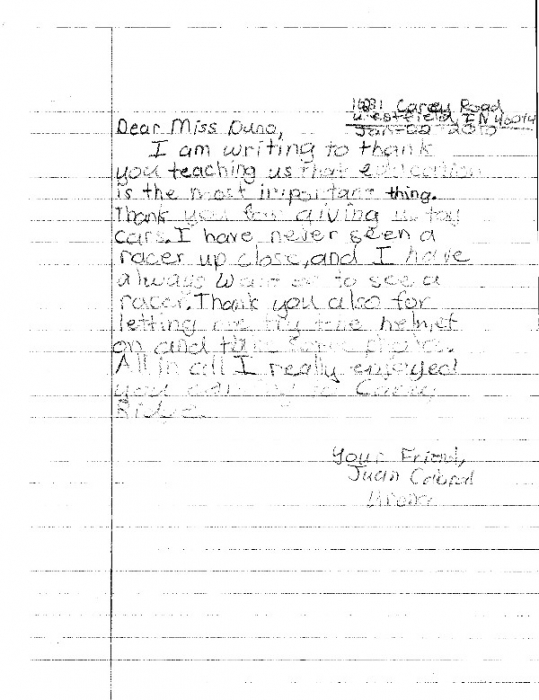 Carey Road
Westfield, IN 46074
Jan-22-2010
Dear Miss Duno,
I am writing to thank
you teaching us that education
is the most important thing.
Thank you for giving us toy
cars. I have never seen a
racer up close, and I have
always to see a
racer. Thank you also for
letting me try the helmet
on and take some photos.
All in all I really enjoyed
you to Carey
Ridge
Your Friend,
Juan